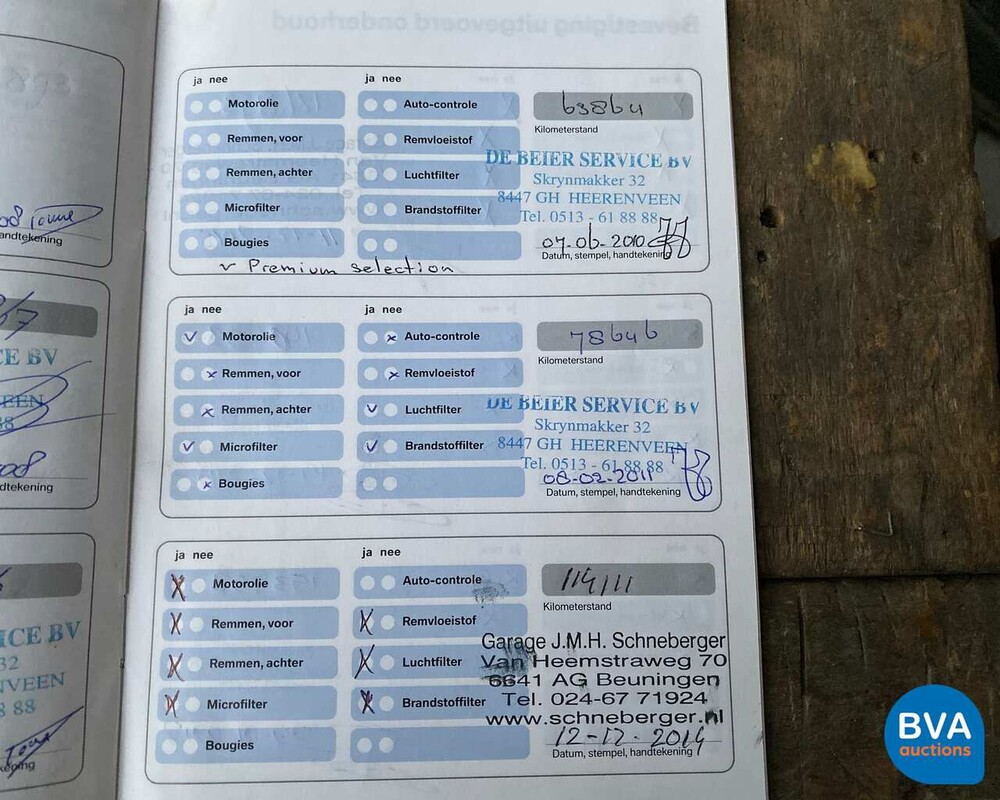 ja nee
ja nee
Motorolie
Auto-controle
63864
Kilometerstand
Remmen, voor
Remvloeistof
DE BEIER SERVICE BV
Remmen, achter
Luchtfilter
Skrynmakker 32
8447 GH HEERENVEEN
Microfilter
Brandstoffilter
Tel. 0513 - 61 88 88
Bougies
07-06-2010
Datum, stempel, handtekening
v Premium selection
ja nee
ja nee
v Motorolie
x Auto-controle
78646
Kilometerstand
x Remmen, voor
x Remvloeistof
x Remmen, achter
v Luchtfilter
DE BEIER SERVICE BV
Skrynmakker 32
v Microfilter
v Brandstoffilter
8447 GH HEERENVEEN
Tel. 0513 - 61 88 88
x Bougies
08-02-2011
Datum, stempel, handtekening
ja nee
ja nee
X Motorolie
Auto-controle
114111
Kilometerstand
X Remmen, voor
X Remvloeistof
Garage J.M.H. Schneberger
X Remmen, achter
X Luchtfilter
Van Heemstraweg 70
6641 AG Beuningen
X Microfilter
X Brandstoffilter
Tel. 024-67 71924
www.schneberger.nl
Bougies
12-12-2014
Datum, stempel, handtekening
Bevestiging uitgevoerd onderhoud
andtekening
67
E BV
EEN
88
dtekening
ICE BV
32
NVEEN
8 88
BVA
auctions